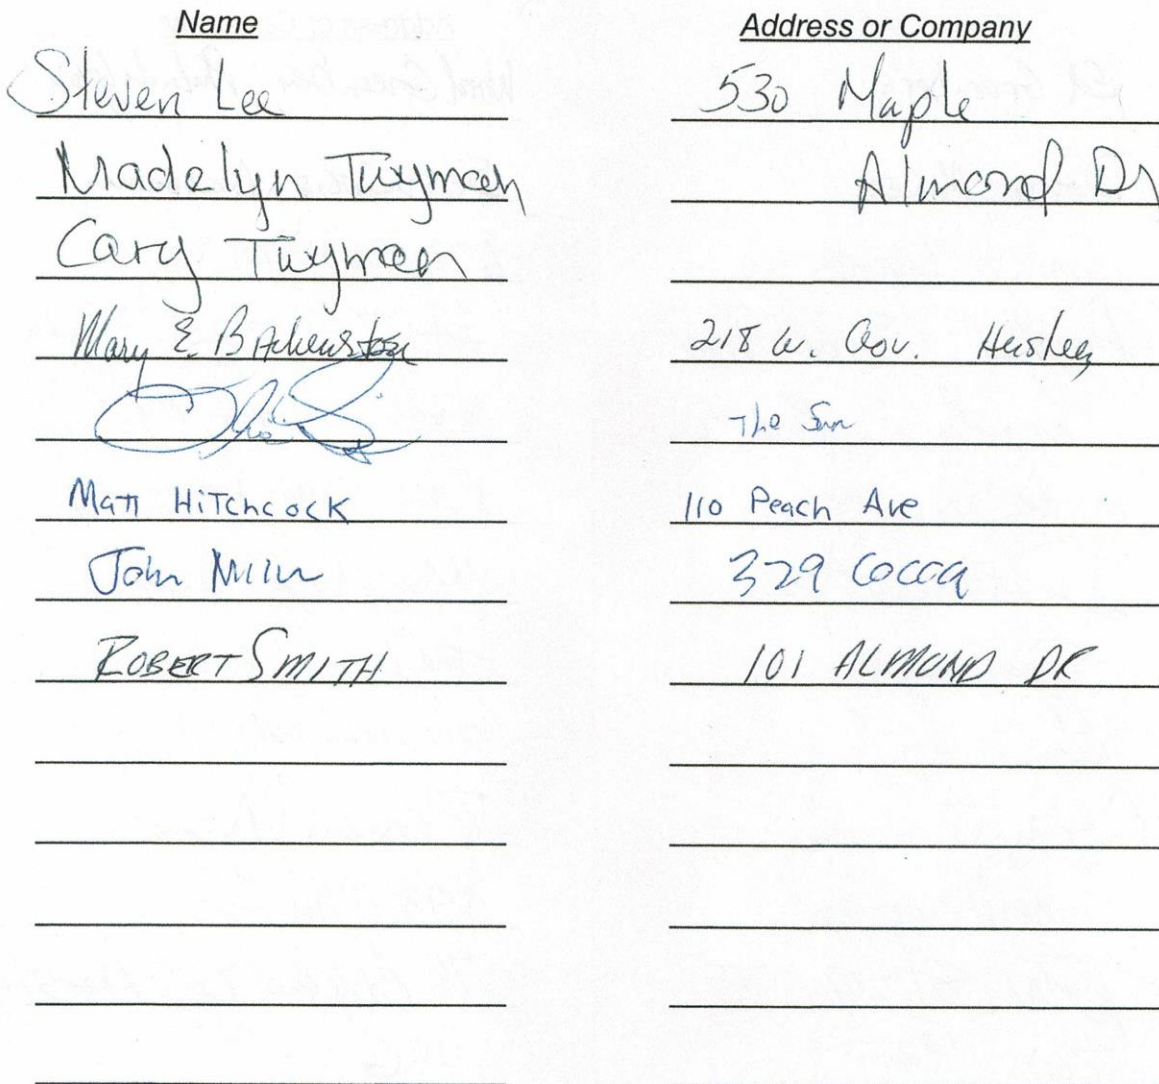 Name Address or Company
Steven Lee 530 Maple
Madelyn Twyman Almond Dr
Cary Twyman
Mary E. 218 W. Gov. Hershey
The Sun
Matt Hitchcock 110 Peach Ave
John 329 Cocoa
ROBERT SMITH 101 ALMOND DR